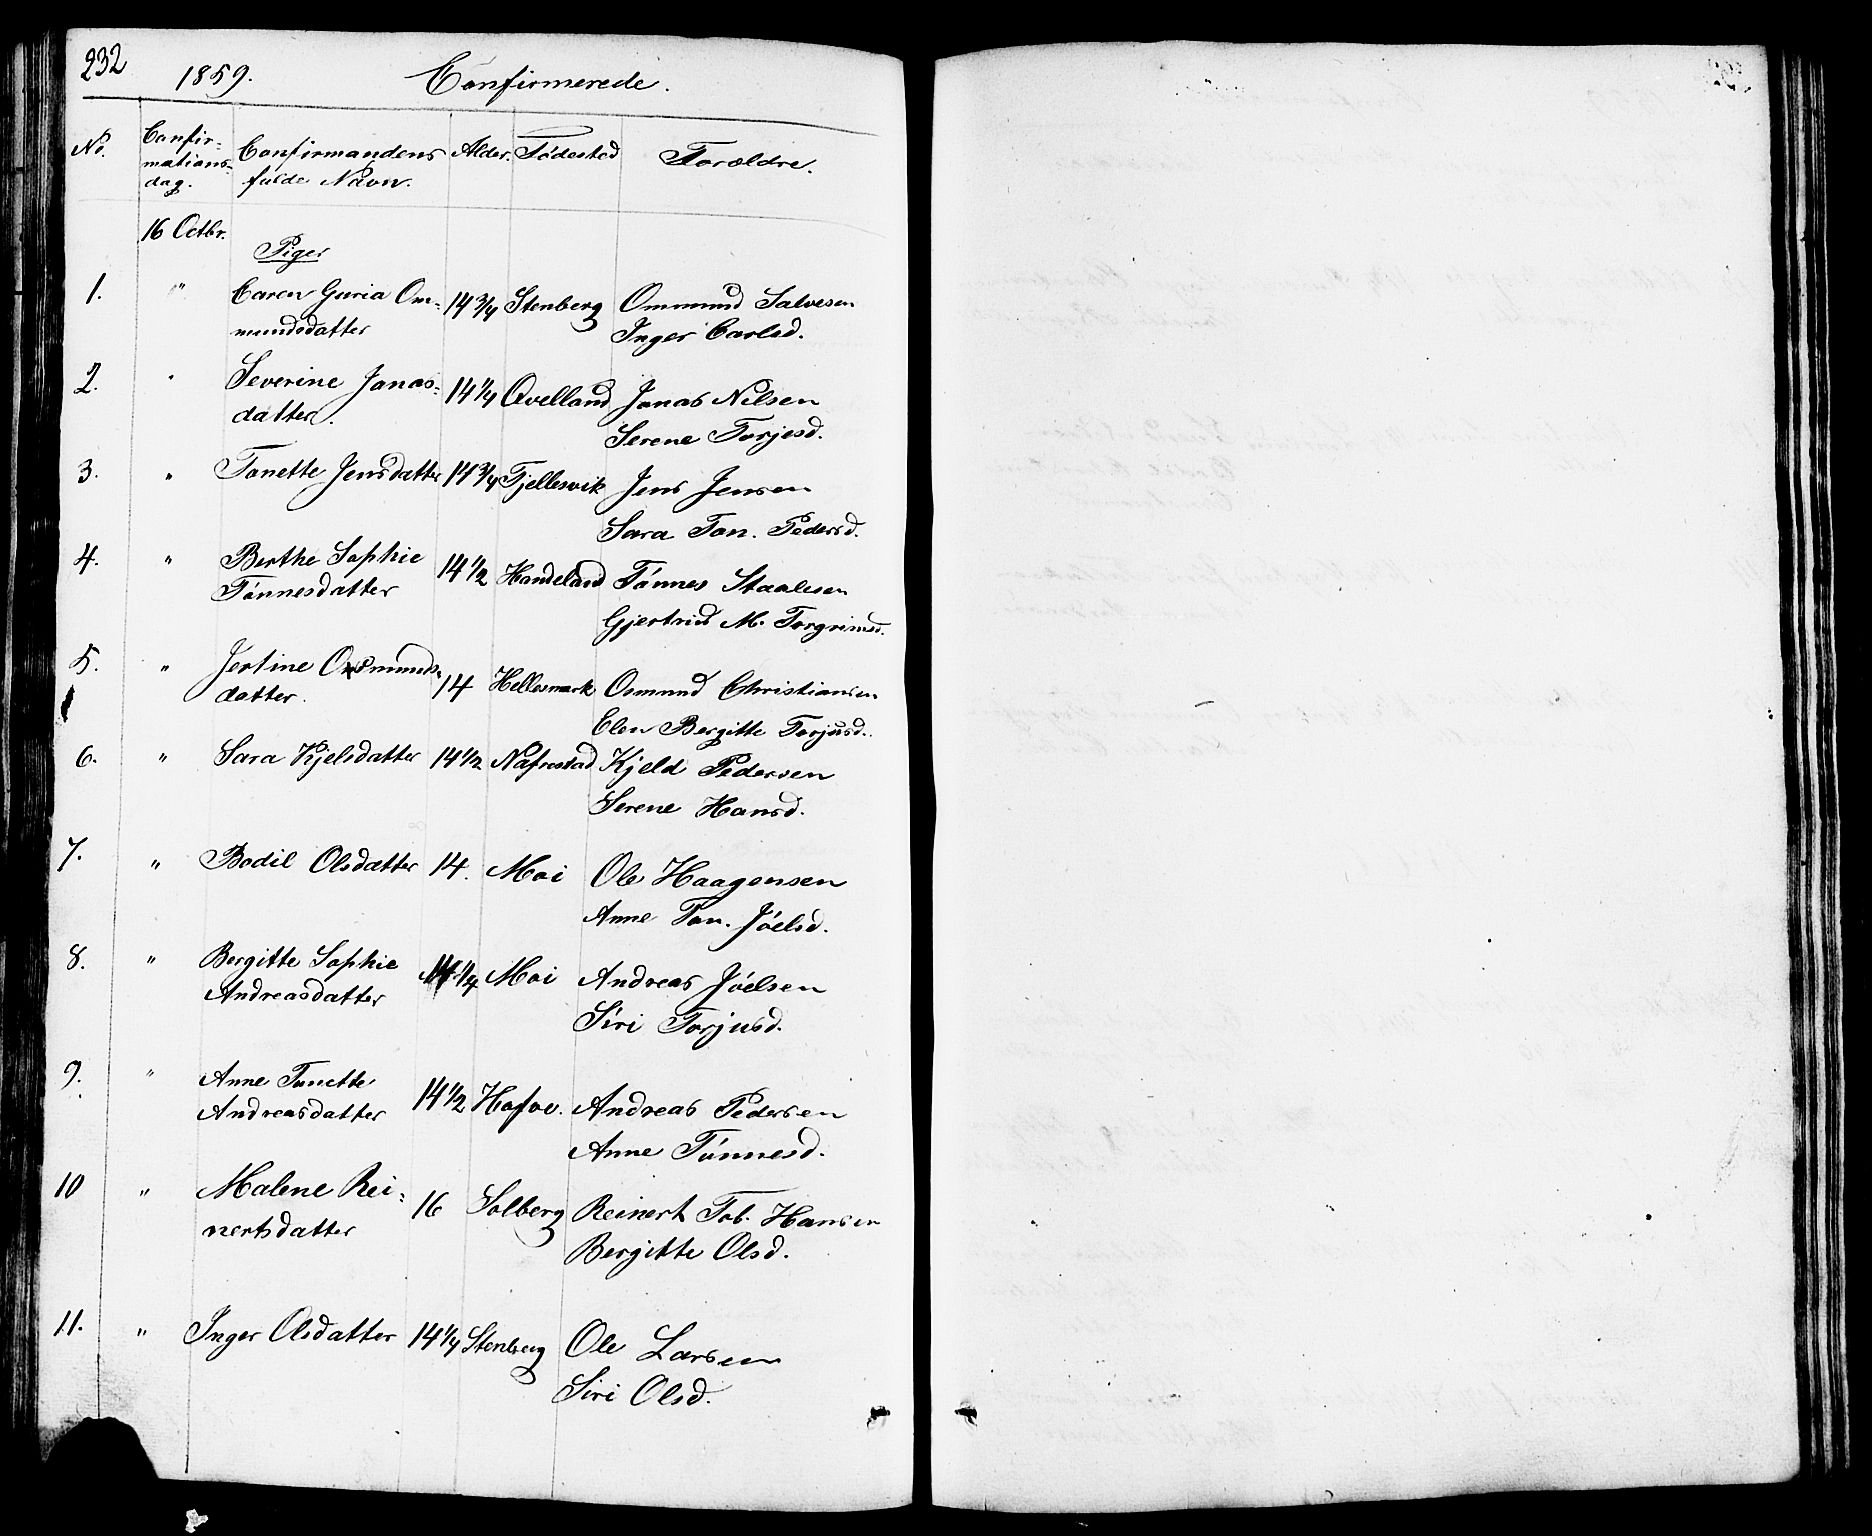 232
1859. Confirmerede.
No. Confir= mations= dag. Confirmandens fulde Navn. Alder. Födested Forældre.
16 Octbr.
Piger
1. " Caren Guria Om= 14 3/4 Stenberg Ommund Salvesen
mundsdatter Inger Carlsd.
2. " Severine Jonas= 14 1/4 Qvelland Jonas Nilsen
datter. Serene Torjesd.
3. " Tonette Jensdatter 14 3/4 Fjellesvik Jens Jensen
Sara Ton. Pedersd.
4. " Berthe Sophie 14 1/2 Handeland Tönnes Staalesen
Tönnesdatter Gjertrud M. Torgrimsd.
5. " Jertine Osmunds= 14 Hellesmark Osmund Christiansen
datter. Elen Bergitte Torjusd.
6. " Sara Kjelsdatter 14 1/2 Nafrestad Kjeld Pedersen
Serene Hansd.
7. " Bodil Olsdatter 14. Moi Ole Haagensen
Anne Ton. Jöelsd.
8. " Bergitte Sophie 14 1/4 Moi Andreas Jöelsen
Andreasdatter Siri Torjusd.
9. " Anne Tonette 14 1/2 Andreas Pedersen
Andreasdatter Anne Tönnesd.
10 " Malene Rei= 16 Solberg Reinert Tob. Hansen
nertsdatter Bergitte Olsd.
11. " Inger Olsdatter 14 1/4 Stenberg Ole Larsen
Siri Olsd.